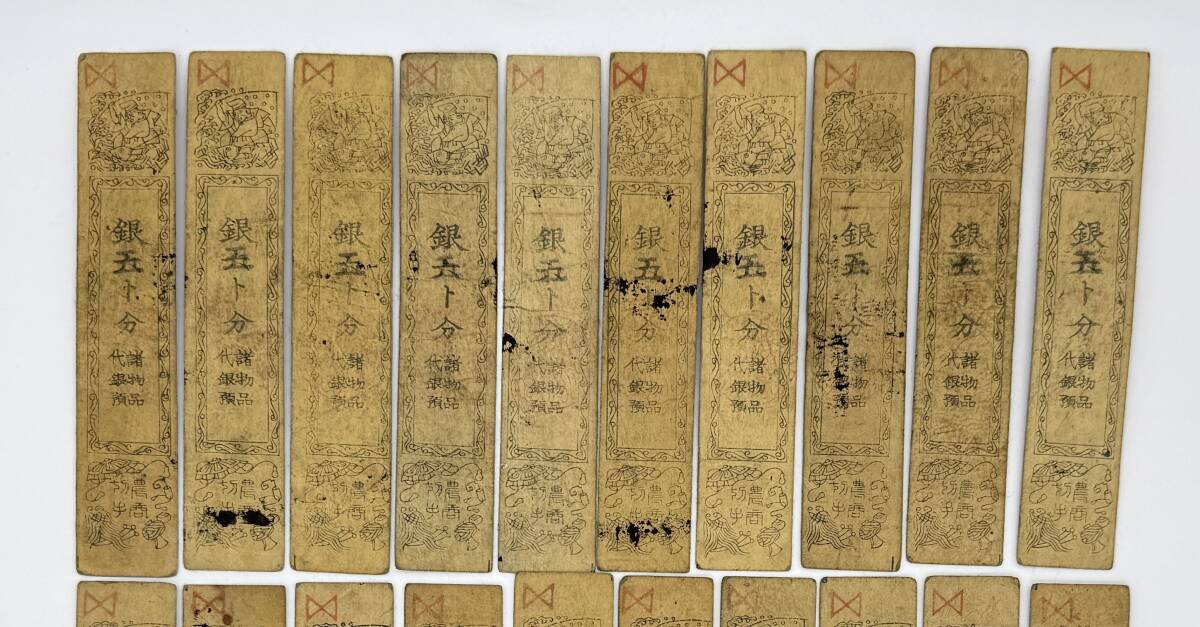 銀五卜分
諸物品
代銀預
農商
切手
銀五卜分
諸物品
代銀預
農商
切手
銀五卜分
諸物品
代銀預
農商
切手
銀五卜分
諸物品
代銀預
農商
切手
銀五卜分
諸物品
代銀預
農商
切手
銀五卜分
諸物品
代銀預
農商
切手
銀五卜分
諸物品
代銀預
農商
切手
銀五卜分
諸物品
代銀預
農商
切手
銀五卜分
諸物品
代銀預
農商
切手
銀五卜分
諸物品
代銀預
農商
切手